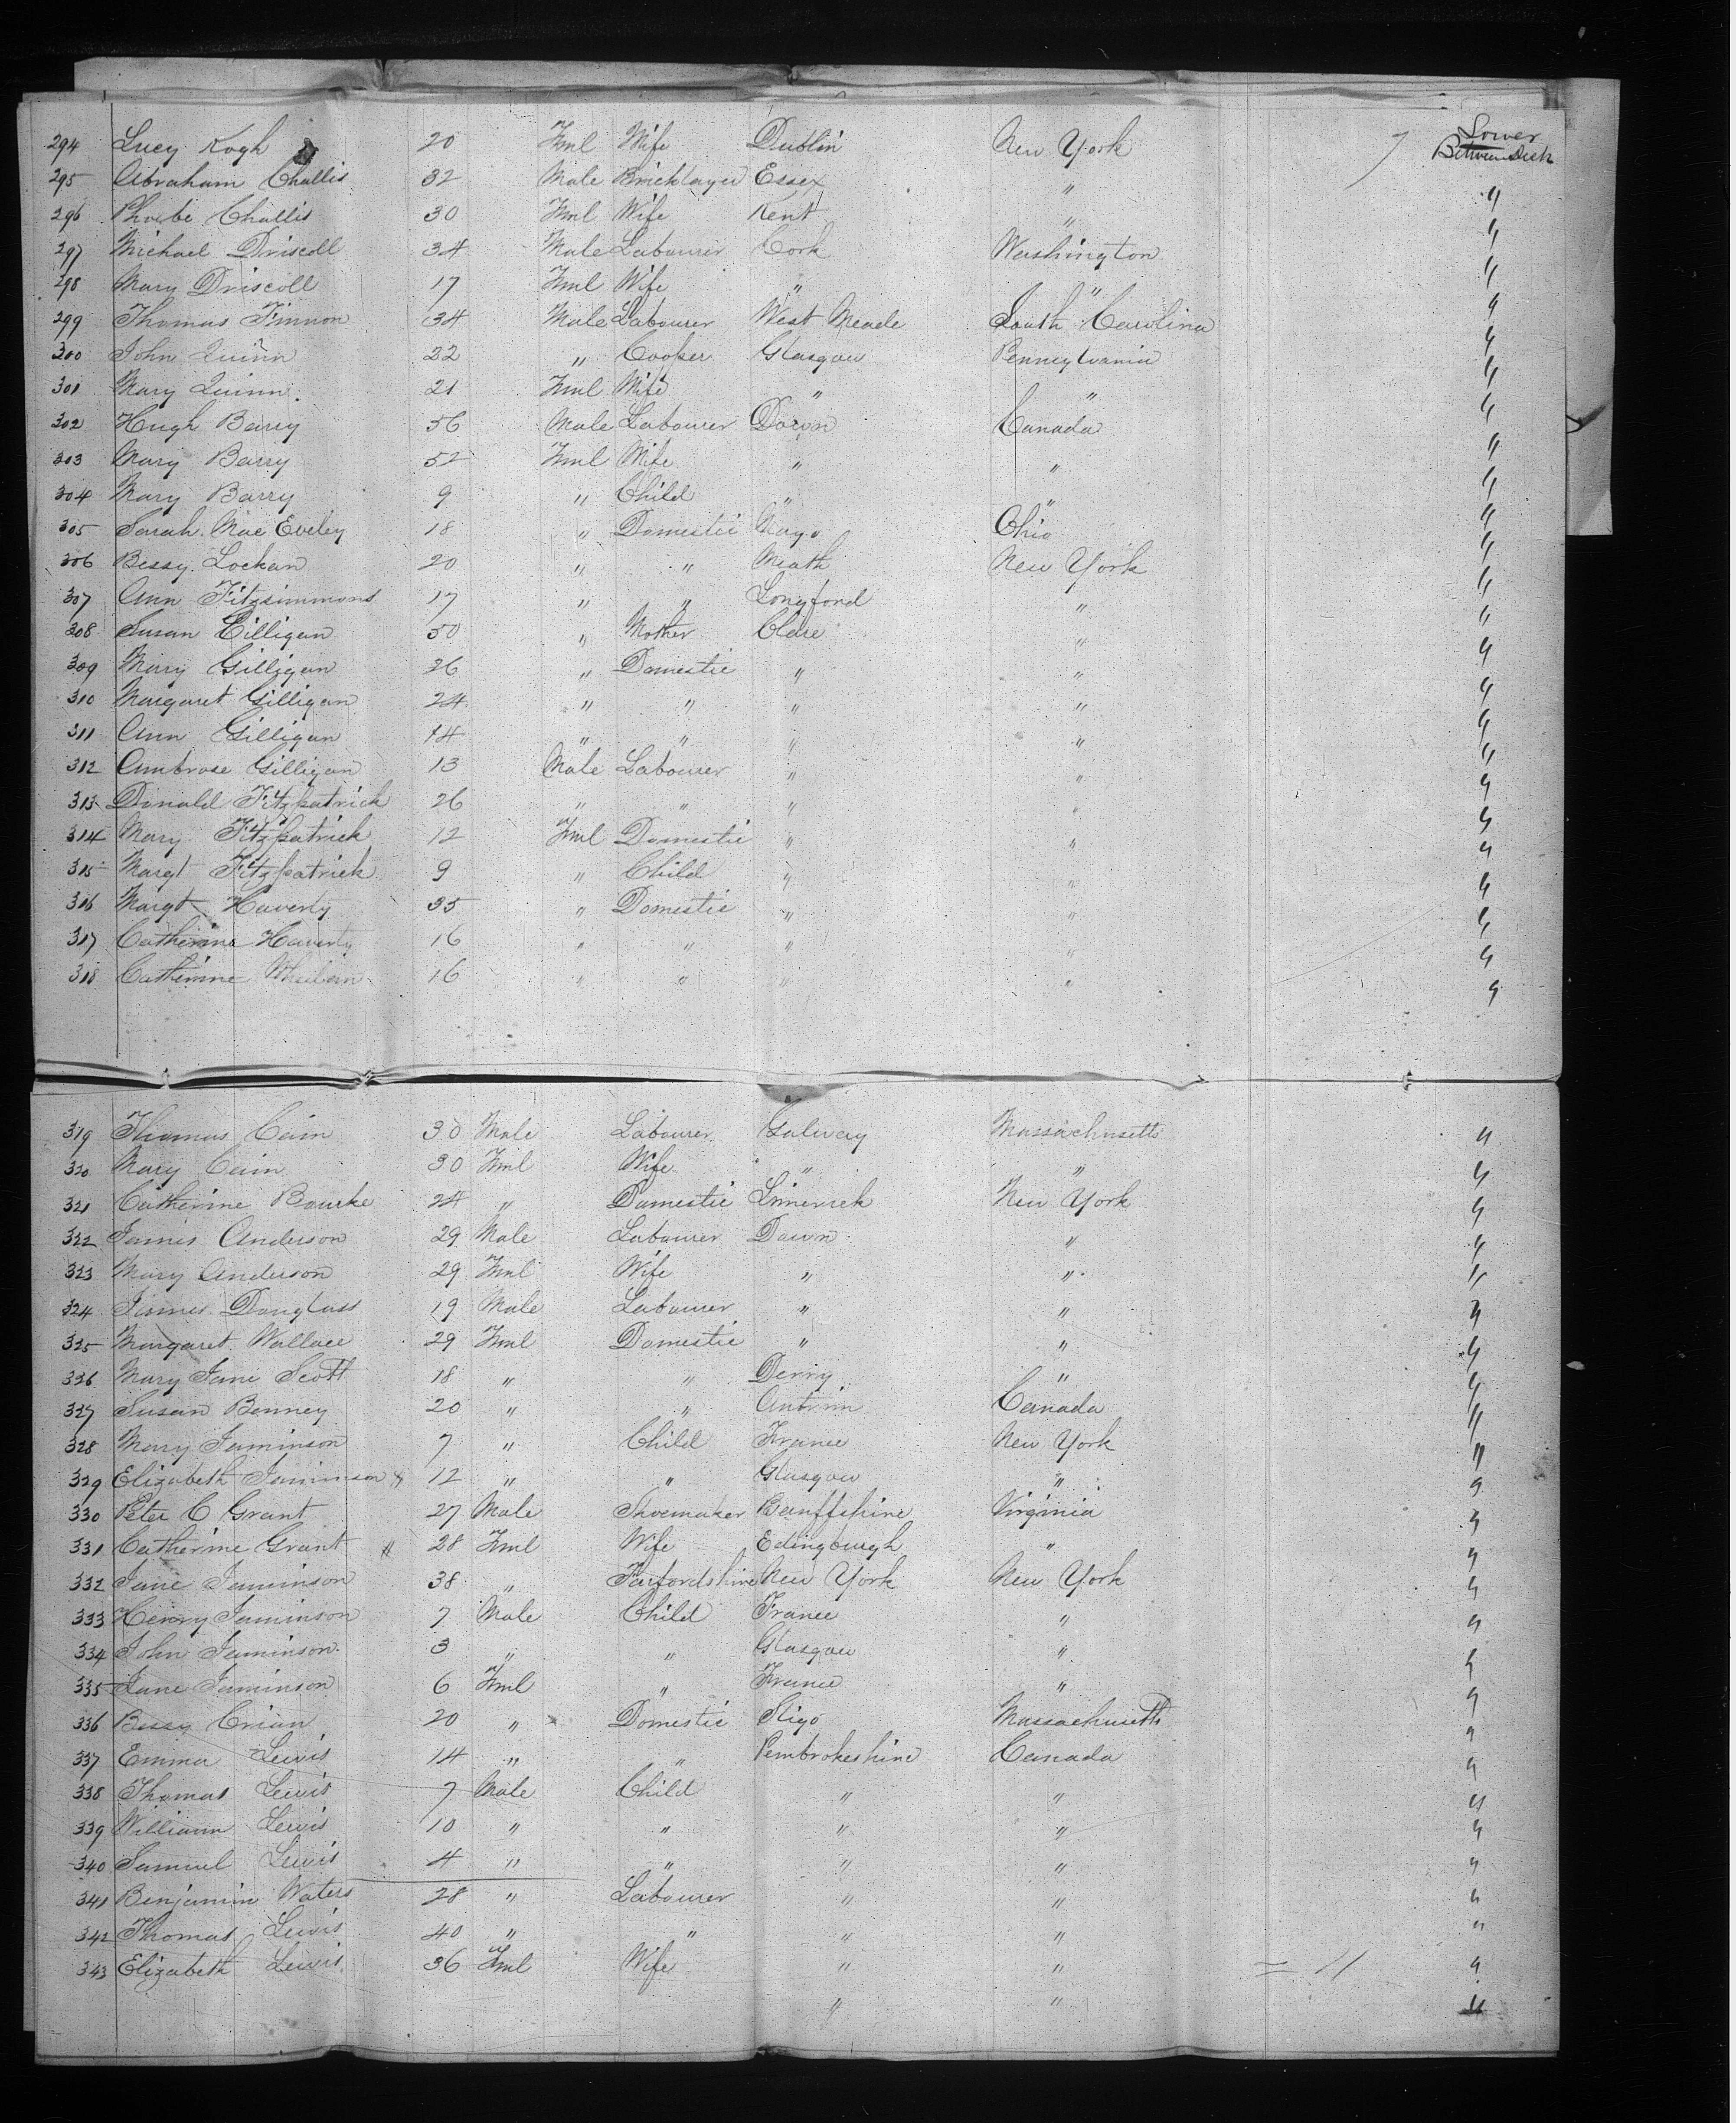 294 Lucy Kogh 20 Fml Wife Dublin New York 7 Lower Between Deck
295 Abraham Challis 32 Male Bricklayer Essex " "
296 Phoebe Challis 30 Fml Wife Kent " "
297 Michael Driscoll 34 Male Labourer Cork Washington "
298 Mary Driscoll 17 Fml Wife " " "
299 Thomas Finnon 34 Male Labourer West Meade South Carolina "
300 John Quinn 22 " Cooper Glasgow Pennsylvania "
301 Mary Quinn 21 Fml Wife " " "
302 Hugh Barry 56 Male Labourer Down Canada "
303 Mary Barry 52 Fml Wife " " "
304 Mary Barry 9 " Child " " "
305 Sarah Mac Eveley 18 " Domestic Mayo Ohio "
306 Bessy Lockan 20 " " Meath New York "
307 Ann Fitzsimmons 17 " " Longford " "
308 Susan Gilligan 50 " Mother Clare " "
309 Mary Gilligan 26 " Domestic " " "
310 Margaret Gilligan 24 " " " " "
311 Ann Gilligan 14 " " " " "
312 Ambrose Gilligan 13 Male Labourer " " "
313 Donald Fitzpatrick 26 " " " " "
314 Mary Fitzpatrick 12 Fml Domestic " " "
315 Margt Fitzpatrick 9 " Child " " "
316 Margt Haverty 35 " Domestic " " "
317 Catherine Haverty 16 " " " " "
318 Catherine Whelean 16 " " " " "
319 Thomas Cain 30 Male Labourer Galway Massachusetts "
320 Mary Cain 30 Fml Wife " " "
321 Catherine Bourke 24 " Domestic Limerick New York "
322 James Anderson 29 Male Labourer Down " "
323 Mary Anderson 29 Fml Wife " " "
324 James Douglass 19 Male Labourer " " "
325 Margaret Wallace 29 Fml Domestic " " "
326 Mary Jane Scott 18 " " Derry " "
327 Susan Benney 20 " " Antrim Canada "
328 Mary Jaminson 7 " Child France New York "
329 Elizabeth Jaminson 12 " " Glasgow " "
330 Peter C Grant 27 Male Shoemaker Banffshire Virginia "
331 Catherine Grant 28 Fml Wife Edingburgh " "
332 Jane Jaminson 38 " Farfordshire New York New York "
333 Henry Jaminson 7 Male Child France " "
334 John Jaminson 3 " " Glasgow " "
335 Jane Jaminson 6 Fml " France " "
336 Bessy Crian 20 " Domestic Sligo Massachusetts "
337 Emma Lewis 14 " " Pembrokeshire Canada "
338 Thomas Lewis 7 Male Child " " "
339 William Lewis 10 " " " " "
340 Samuel Lewis 4 " " " " "
341 Benjamin Waters 28 " Labourer " " "
342 Thomas Lewis 40 " " " " "
343 Elizabeth Lewis 36 Fml Wife " " "
" " "